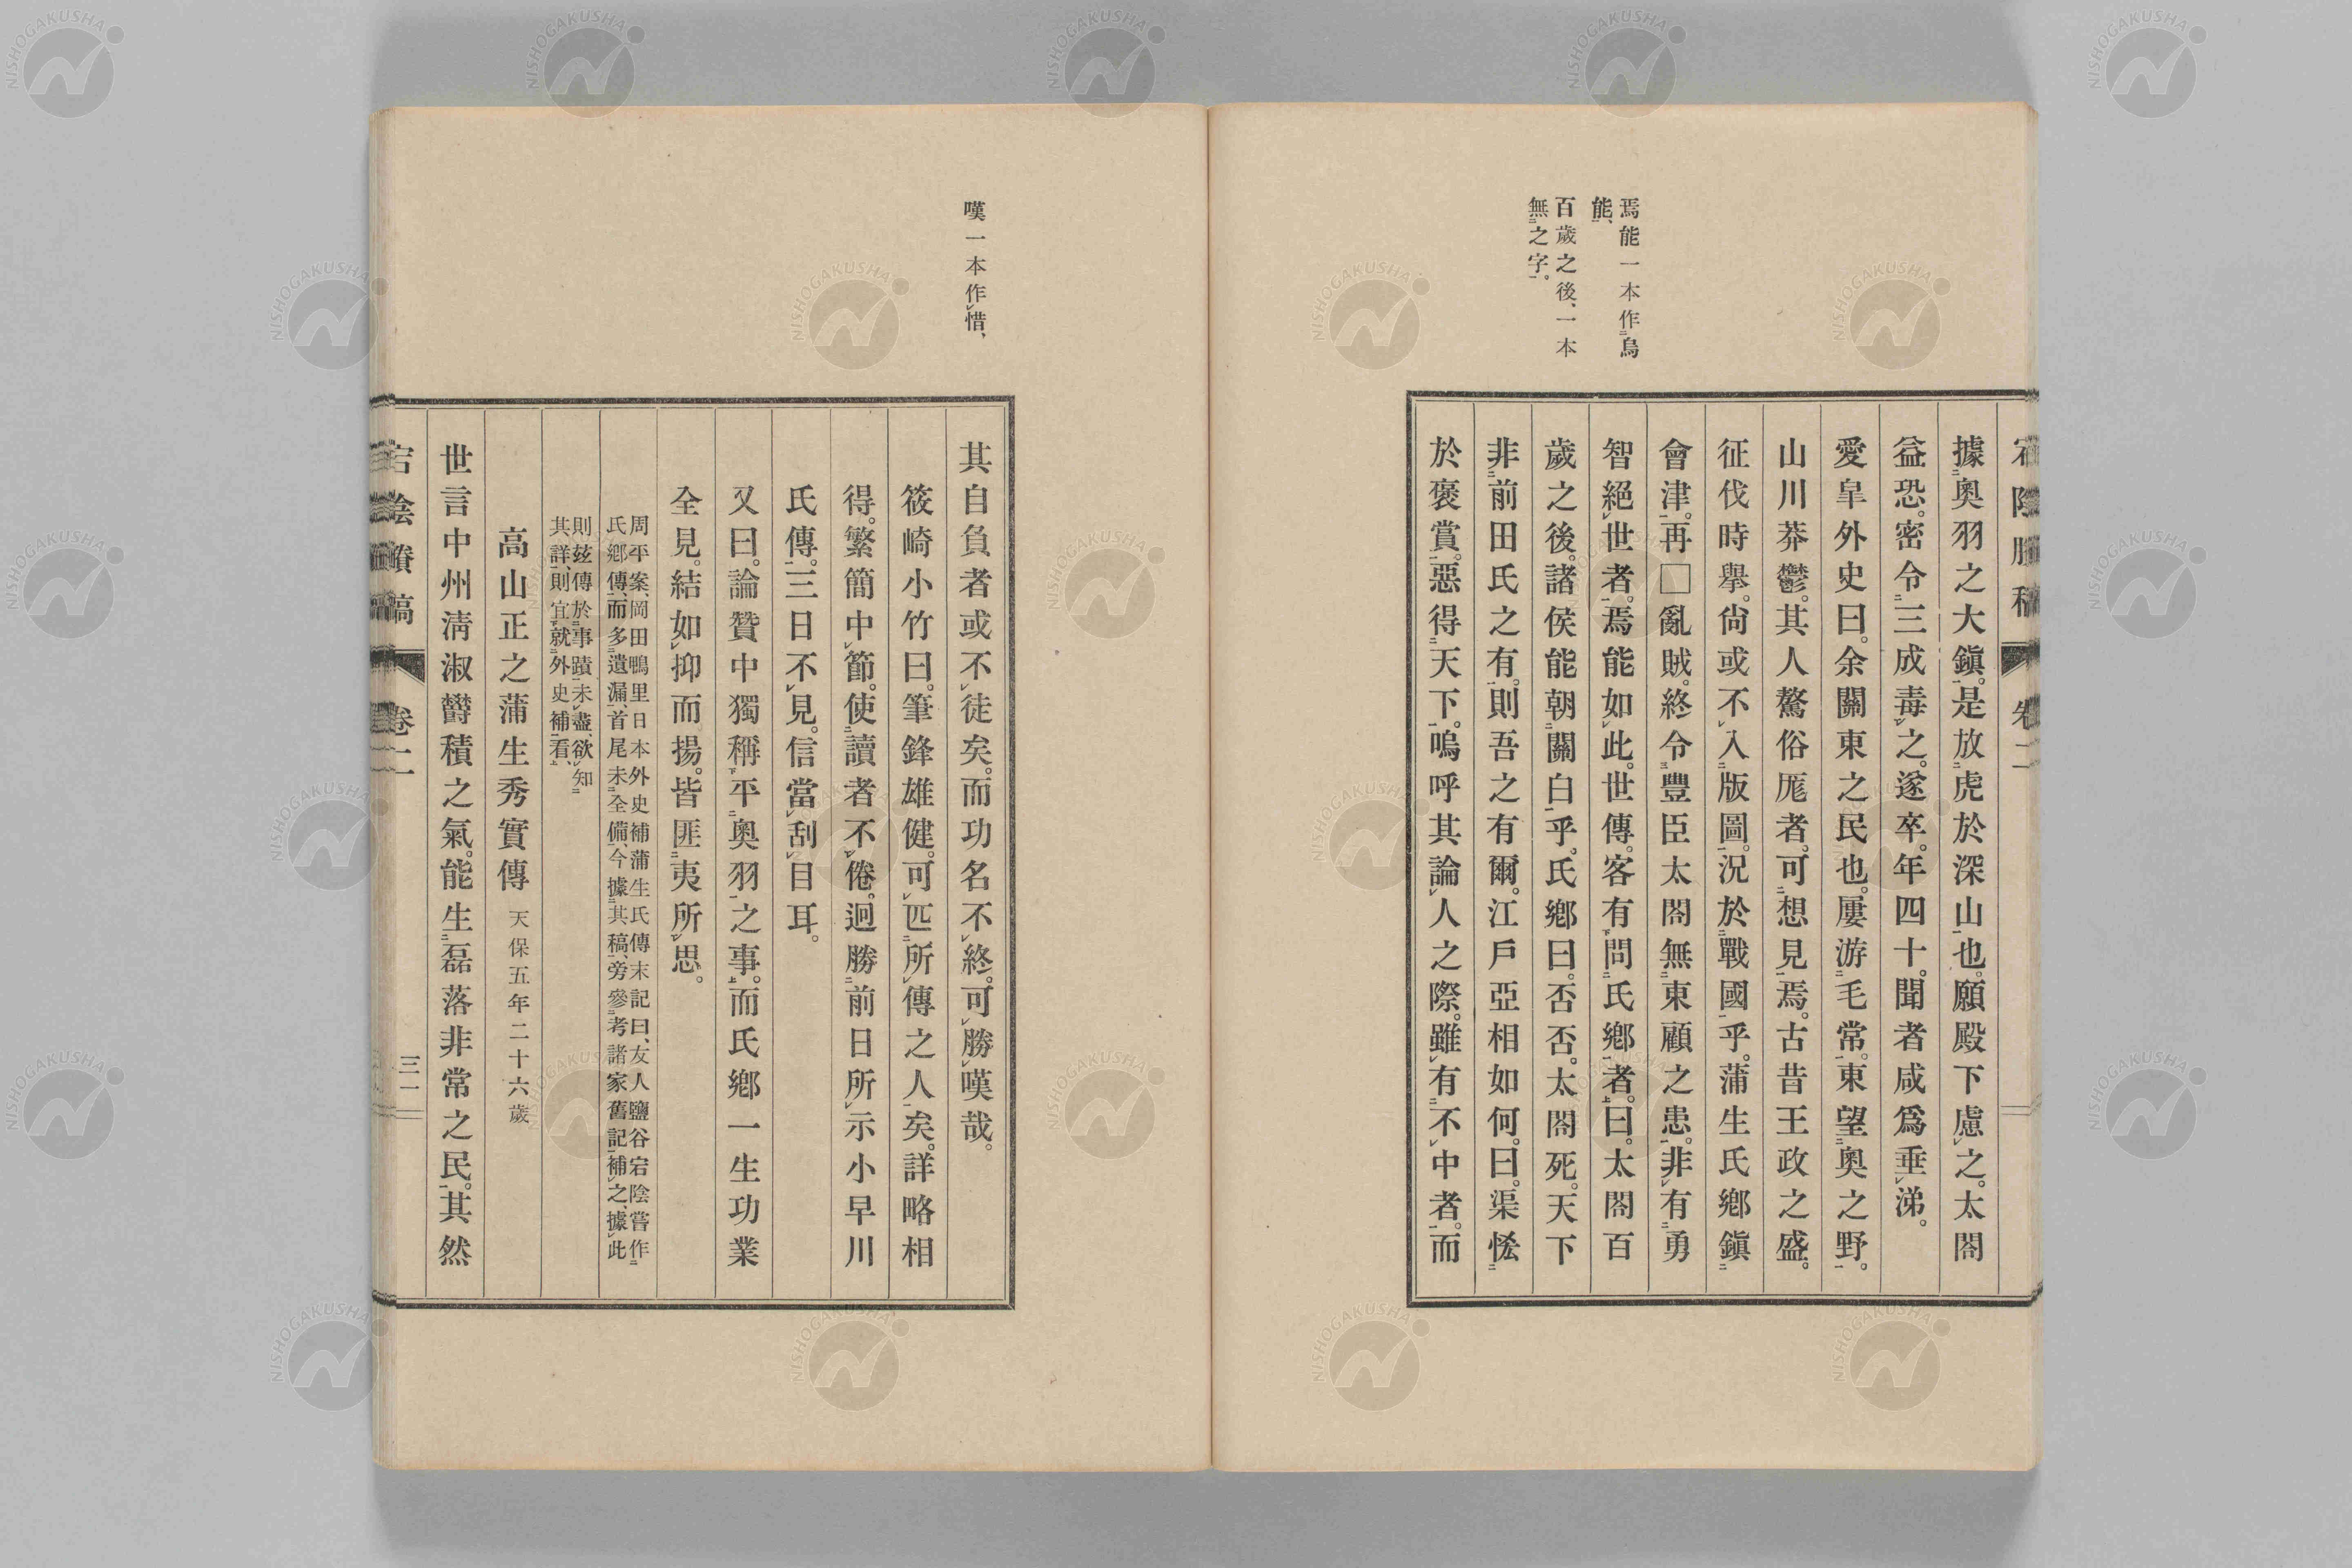 焉能一本作烏
能、
百歲之後、一本
無之字。
據奧羽之大鎭。是放虎於深山也。願殿下慮之。太閤
益恐。密令三成毒之。遂卒。年四十。聞者咸爲垂涕。
愛皐外史曰。余關東之民也。屢游毛常。東望奧之野。
山川莽鬱。其人驁俗厖者。可想見焉。古昔王政之盛。
征伐時擧。尙或不入版圖。況於戰國乎。蒲生氏鄕鎭
會津。再□亂賊。終令豐臣太閤無東顧之患。非有勇
智絕世者。焉能如此。世傳。客有問氏鄕者。曰。太閤百
歲之後。諸侯能朝關白乎。氏鄕曰。否否。太閤死。天下
非前田氏之有。則吾之有爾。江戶亞相如何。曰。渠恡
於褒賞。惡得天下。嗚呼其論人之際。雖有不中者。而
嘆一本作惜、
其自負者或不徒矣。而功名不終。可勝嘆哉。
筱崎小竹曰。筆鋒雄健。可匹所傳之人矣。詳略相
得。繁簡中節。使讀者不倦。迥勝前日所示小早川
氏傳。三日不見。信當刮目耳。
又曰。論贊中獨稱平奧羽之事。而氏鄕一生功業
全見。結如抑而揚。皆匪夷所思。
周平案、岡田鴨里日本外史補蒲生氏傳末記曰、友人鹽谷宕陰嘗作
氏鄕傳、而多遺漏、首尾未全備、今據其稿、旁參考諸家舊記補之、據此
則玆傳於事蹟未盡、欲知
其詳、則宜就外史補看、
高山正之蒲生秀實傳 天保五年二十六歲
世言中州淸淑欝積之氣。能生磊落非常之民。其然
卷二
三一